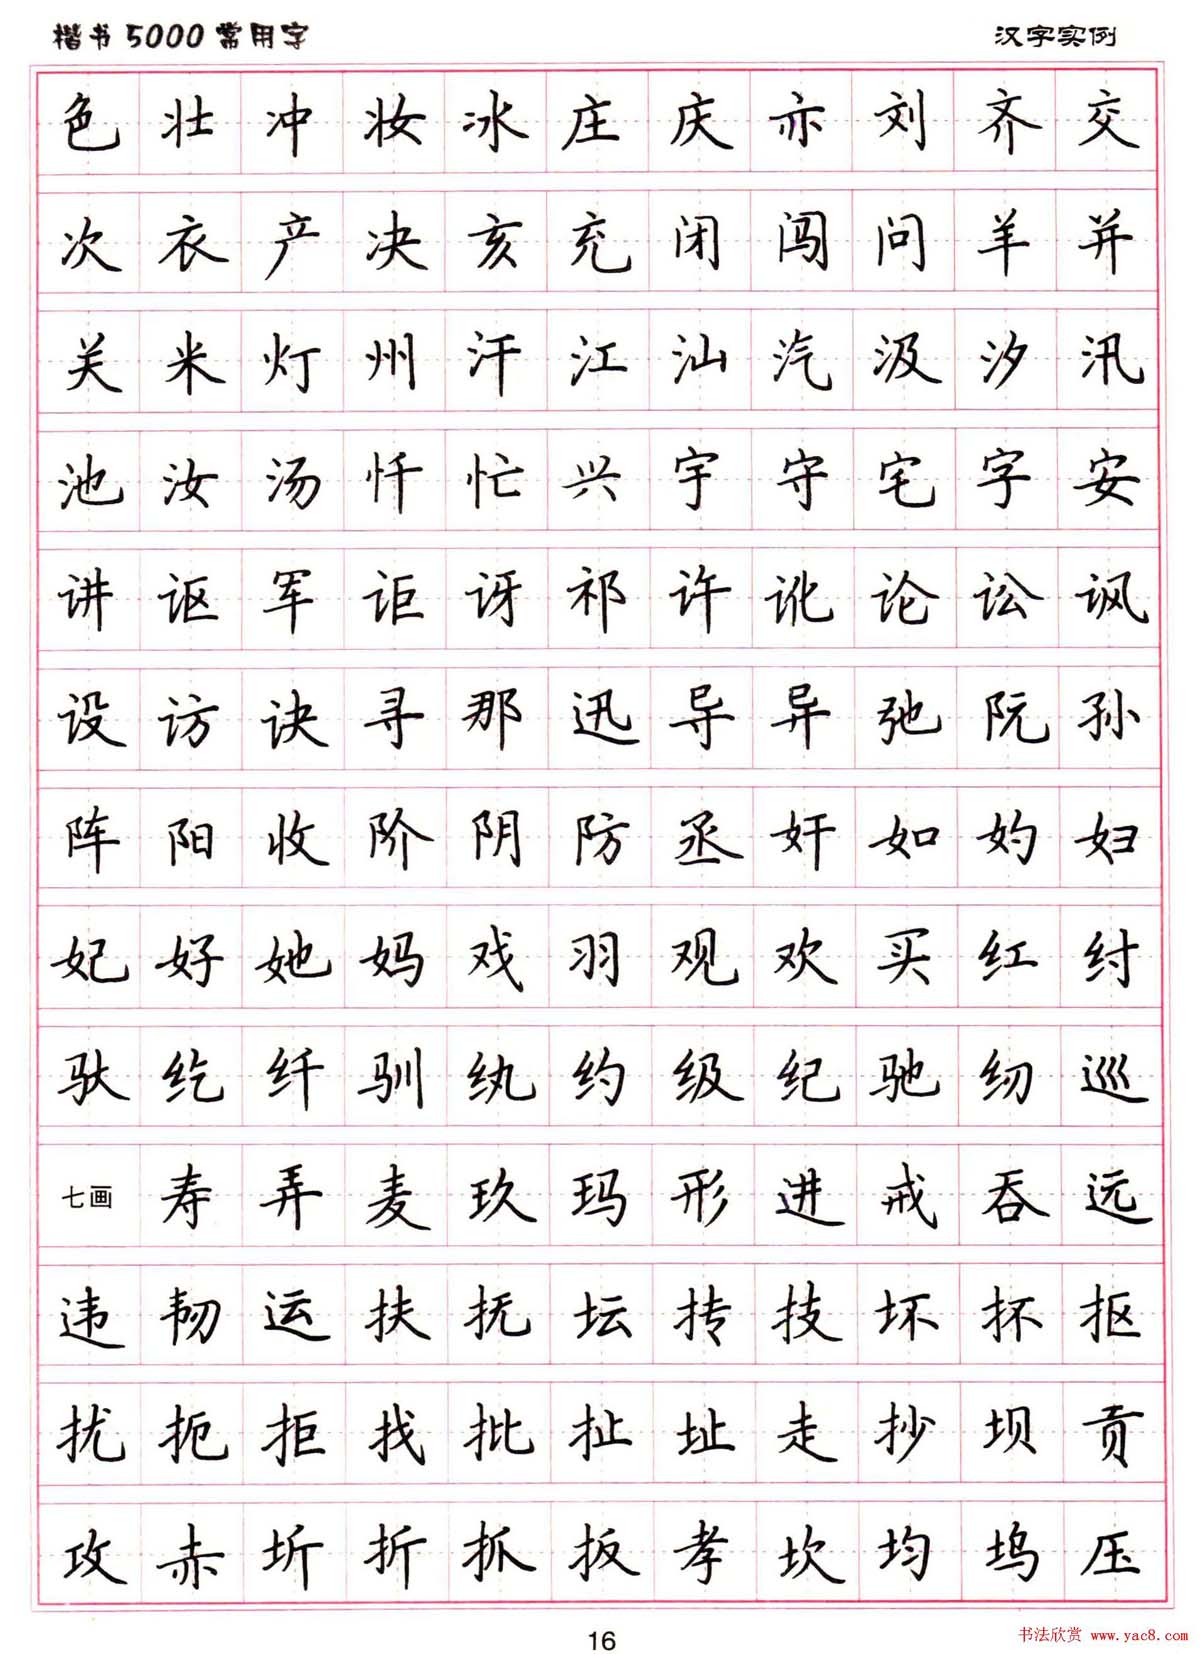 楷书5000常用字 汉字实例
色壮冲妆冰庄庆亦刘齐交
次衣产决亥充闭闯问羊并
关米灯州汗江汕汽汲汐汛
池汝汤忏忙兴宇守宅字安
讲讴军讵讶祁许讹论讼讽
设访诀寻那迅导异弛阮孙
阵阳收阶阴防丞奸如妁妇
妃好她妈戏羽观欢买红纣
驮纥纤驯纨约级纪驰纫巡
七画寿弄麦玖玛形进戒吞远
违韧运扶抚坛抟技坏抔抠
扰扼拒找批扯址走抄坝贡
攻赤圻折抓扳孝坎均坞压
16
书法欣赏 www.yac8.com